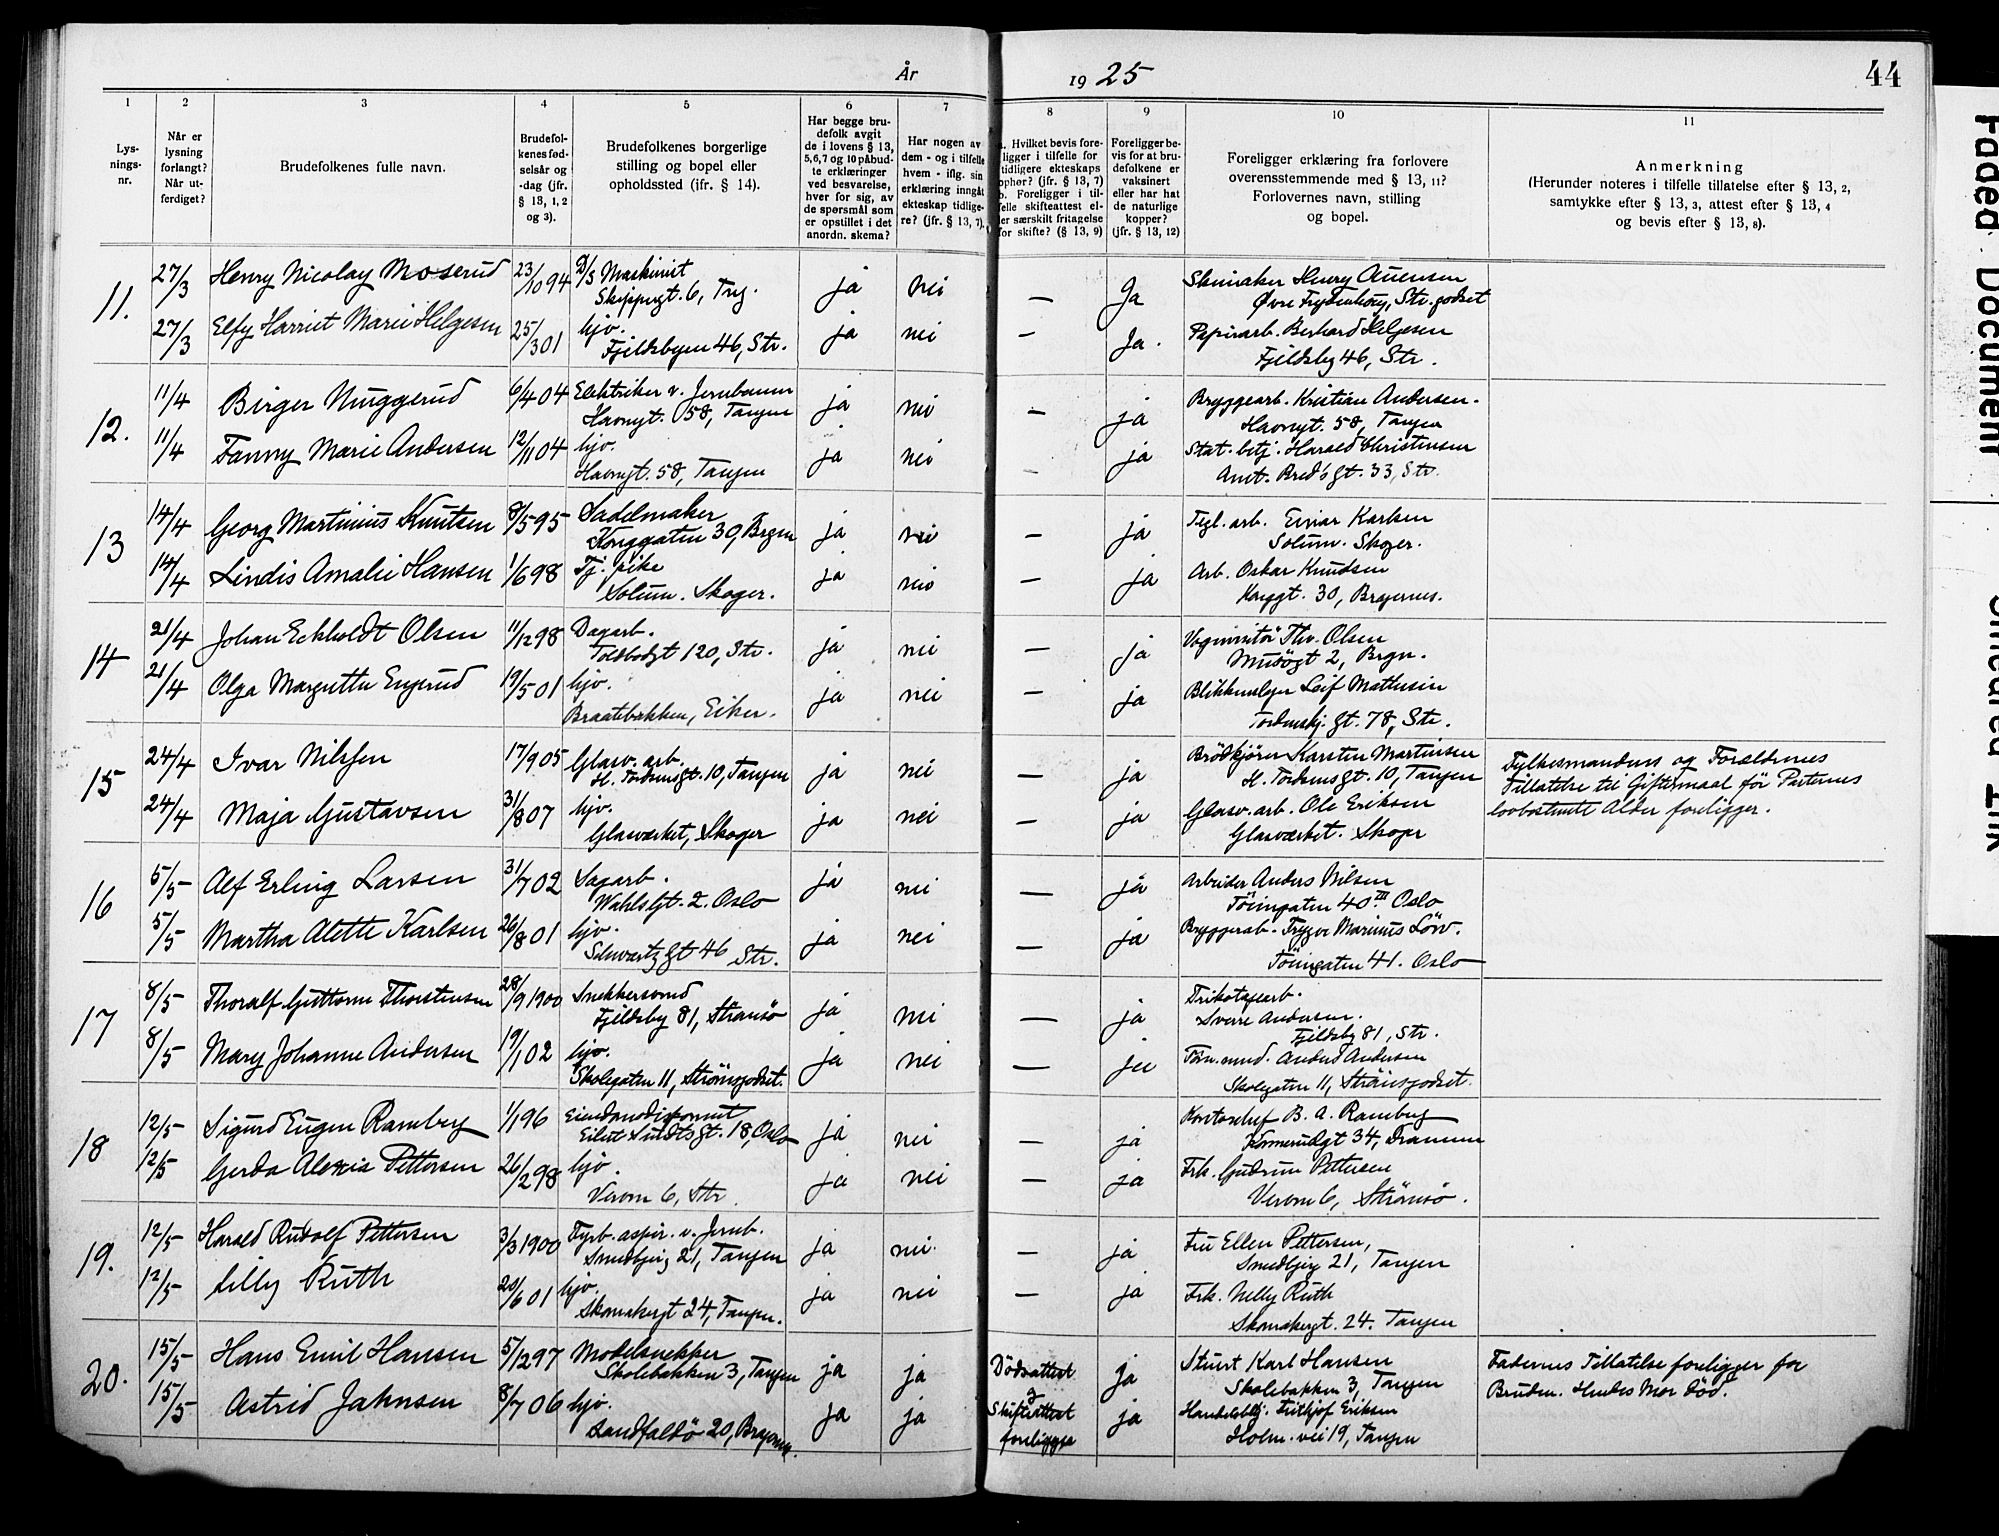 År 19 25
44
1 2 3 4 5 6 7 8 9 10 11
Lys-
nings-
nr.
Når er
lysning
forlangt?
Når ut-
ferdiget?
Brudefolkenes fulle navn.
Brudefol-
kenes fød-
selsår og
-dag (jfr.
§ 13, 1, 2
og 3).
Brudefolkenes borgerlige
stilling og bopel eller
opholdssted (ifr. § 14).
Har begge bru-
defolk avgit
de i lovens § 13,
5,6,7 og 10 påbud-
te erklæringer
ved besvarelse,
hver for sig, av
de spørsmål som
er opstillet i det
anordn. skema?
Har nogen av
dem - og i tilfelle
hvem - iflg. sin
erklæring inngåt
ekteskap tidlige-
re? (jfr. § 13, 7).
a. Hvilket bevis fore-
ligger i tilfelle for
tidligere ekteskaps
ophør? (jfr. § 13, 7)
b. Foreligger i til-
felle skifteattest el-
ler særskilt fritagelse
for skifte? (§ 13, 9)
Foreligger be-
vis for at bru-
defolkene er
vaksinert
eller har hat
de naturlige
kopper?
(jfr. § 13, 12)
Foreligger erklæring fra forlovere
overensstemmende med § 13, 11?
Forlovernes navn, stilling
og bopel.
Anmerkning
(Herunder noteres i tilfelle tillatelse efter § 13, 2,
samtykke efter § 13, 3, attest efter § 13, 4
og bevis efter § 13, 8).
11. 27/3 Henry Nicolay Moserud 23/10 94 D/S Maskinist ja nei — Ja Skinaker Henry
Skippergt. 6, Tng. Øvre Frydenberg, Str. godset
27/3 Elfy Harriet Marie Helgesen 25/3 01 hjv. ja nei — Ja. Papirarb. Berhard Helgesen
Fjeldsbyen 46, Str. Fjeldsby 46, Str.
12. 11/4 Birger Muggerud 6/4 04 Elektriker v. Jernbanen ja nei — ja Bryggearb. Kristian Andersen.
Havnegt. 58, Tangen Havnegt. 58, Tangen
11/4 Fanny Marie Andersen 12/11 04 hjv. ja nei — ja Stat. betj. Harald Christensen
Havnegt. 58, Tangen Amt. Bred's gt. 33, Str.
13 14/4 Georg Martinius Knutsen 8/5 95 Sadelmaker ja nei — ja Tegl. arb. Einar Karlsen
Konggaten 30, Brgn Solum. Skoger.
14/4 Lindis Amalie Hansen 1/6 98 Tj. pike ja nei — ja Arb. Oskar Knudsen
Solum. Skoger. Konggt. 30, Bragernes.
14 21/4 Johan Eckholdt Olsen 11/12 98 Dagarb. ja nei — ja Vognvisitør Thv. Olsen
Toldbodgt 120, Str. Musögt 2, Brgn.
21/4 Olga Margrethe Engerud 19/5 01 hjv. ja nei — ja Blikkenslager Leif Mathesen
Braatebakken, Eiker. Tordenskj. gt. 78, Str.
15 24/4 Ivar Nilsen 17/9 05 Glasv. arb. ja nei — ja Brödkjörer Karsten Martinsen Fylkesmandens og Foreldrenes
H. Tordensgt. 10, Tangen H. Tordensgt. 10, Tangen Tillatelse til Giftermaal för Parternes
24/4 Maja Gustavsen 31/8 07 hjv. ja nei — ja Glasv. arb. Ole Eriksen lovbestemte Alder foreligger.
Glasværket, Skoger Glasværket. Skoger
16 5/5 Alf Erling Larsen 31/7 02 Sagarb. ja nei — ja Arbeider Anders Nilsen
Wahlsgt. 2. Oslo Töiengaten 40 III Oslo
5/5 Martha Alette Karlsen 26/8 01 hjv. ja nei — ja Bryggerarb. Trygve Marinus Löw.
Schwartz gt 46 Str. Töiengaten 41. Oslo
17 8/5 Thoralf Guttorm Thorstensen 28/9 1900 Snekkersvend ja nei — ja Trikotagearb.
Fjeldsby 81, Strömsö Sverre Andersen.
Fjeldsby 81, Str.
8/5 Mary Johanne Andersen 19/1 02 hjv. ja nei — ja Tom. mund. Anders Andersen
Skolegaten 11, Strömsgodset. Skolegaten 11, Strömsgodset.
18 12/5 Sigurd Eugen Ramberg 1/1 96 Eiendomsdisponent ja nei — ja Kontorchef B. A. Ramberg
Eilert Sundts gt. 18, Oslo Konnerudgt 34, Drammen
12/5 Gerda Alexia Pettersen 26/2 98 hjv. ja nei — ja Frk. Gudrun Pettersen
Verven 6, Str. Verven 6, Strömsö.
19. 12/5 Harald Rudolf Pettersen 3/3 1900 Fyrb. aspir. v. Jernb. ja nei. — ja Fru Ellen Pettersen,
Smedbjerg 21, Tangen Smedbjerg 21, Tangen
12/5 Lilly Ruth 20/6 01 hjv. ja nei — ja Frk. Nelly Ruth
Skomakergt 24, Tangen. Skomakergt. 24. Tangen
20. 15/5 Hans Emil Hansen 5/12 97 Modelsnekker ja ja Dödsattest ja Stuert Karl Hansen Faderens Tillatelse foreligger for
Skolebakken 3, Tangen & Skolebakken 3, Tangen Bruden. Hendes Mor död.
15/5 Astrid Jahnsen 8/7 06 hjv. ja ja Skifteattest ja Handelsbtj. Fritjof Eriksen
Landfaldö 20, Bragernes. foreligger Holm. vei 19, Tangen
Faded Document
Smeared Ink